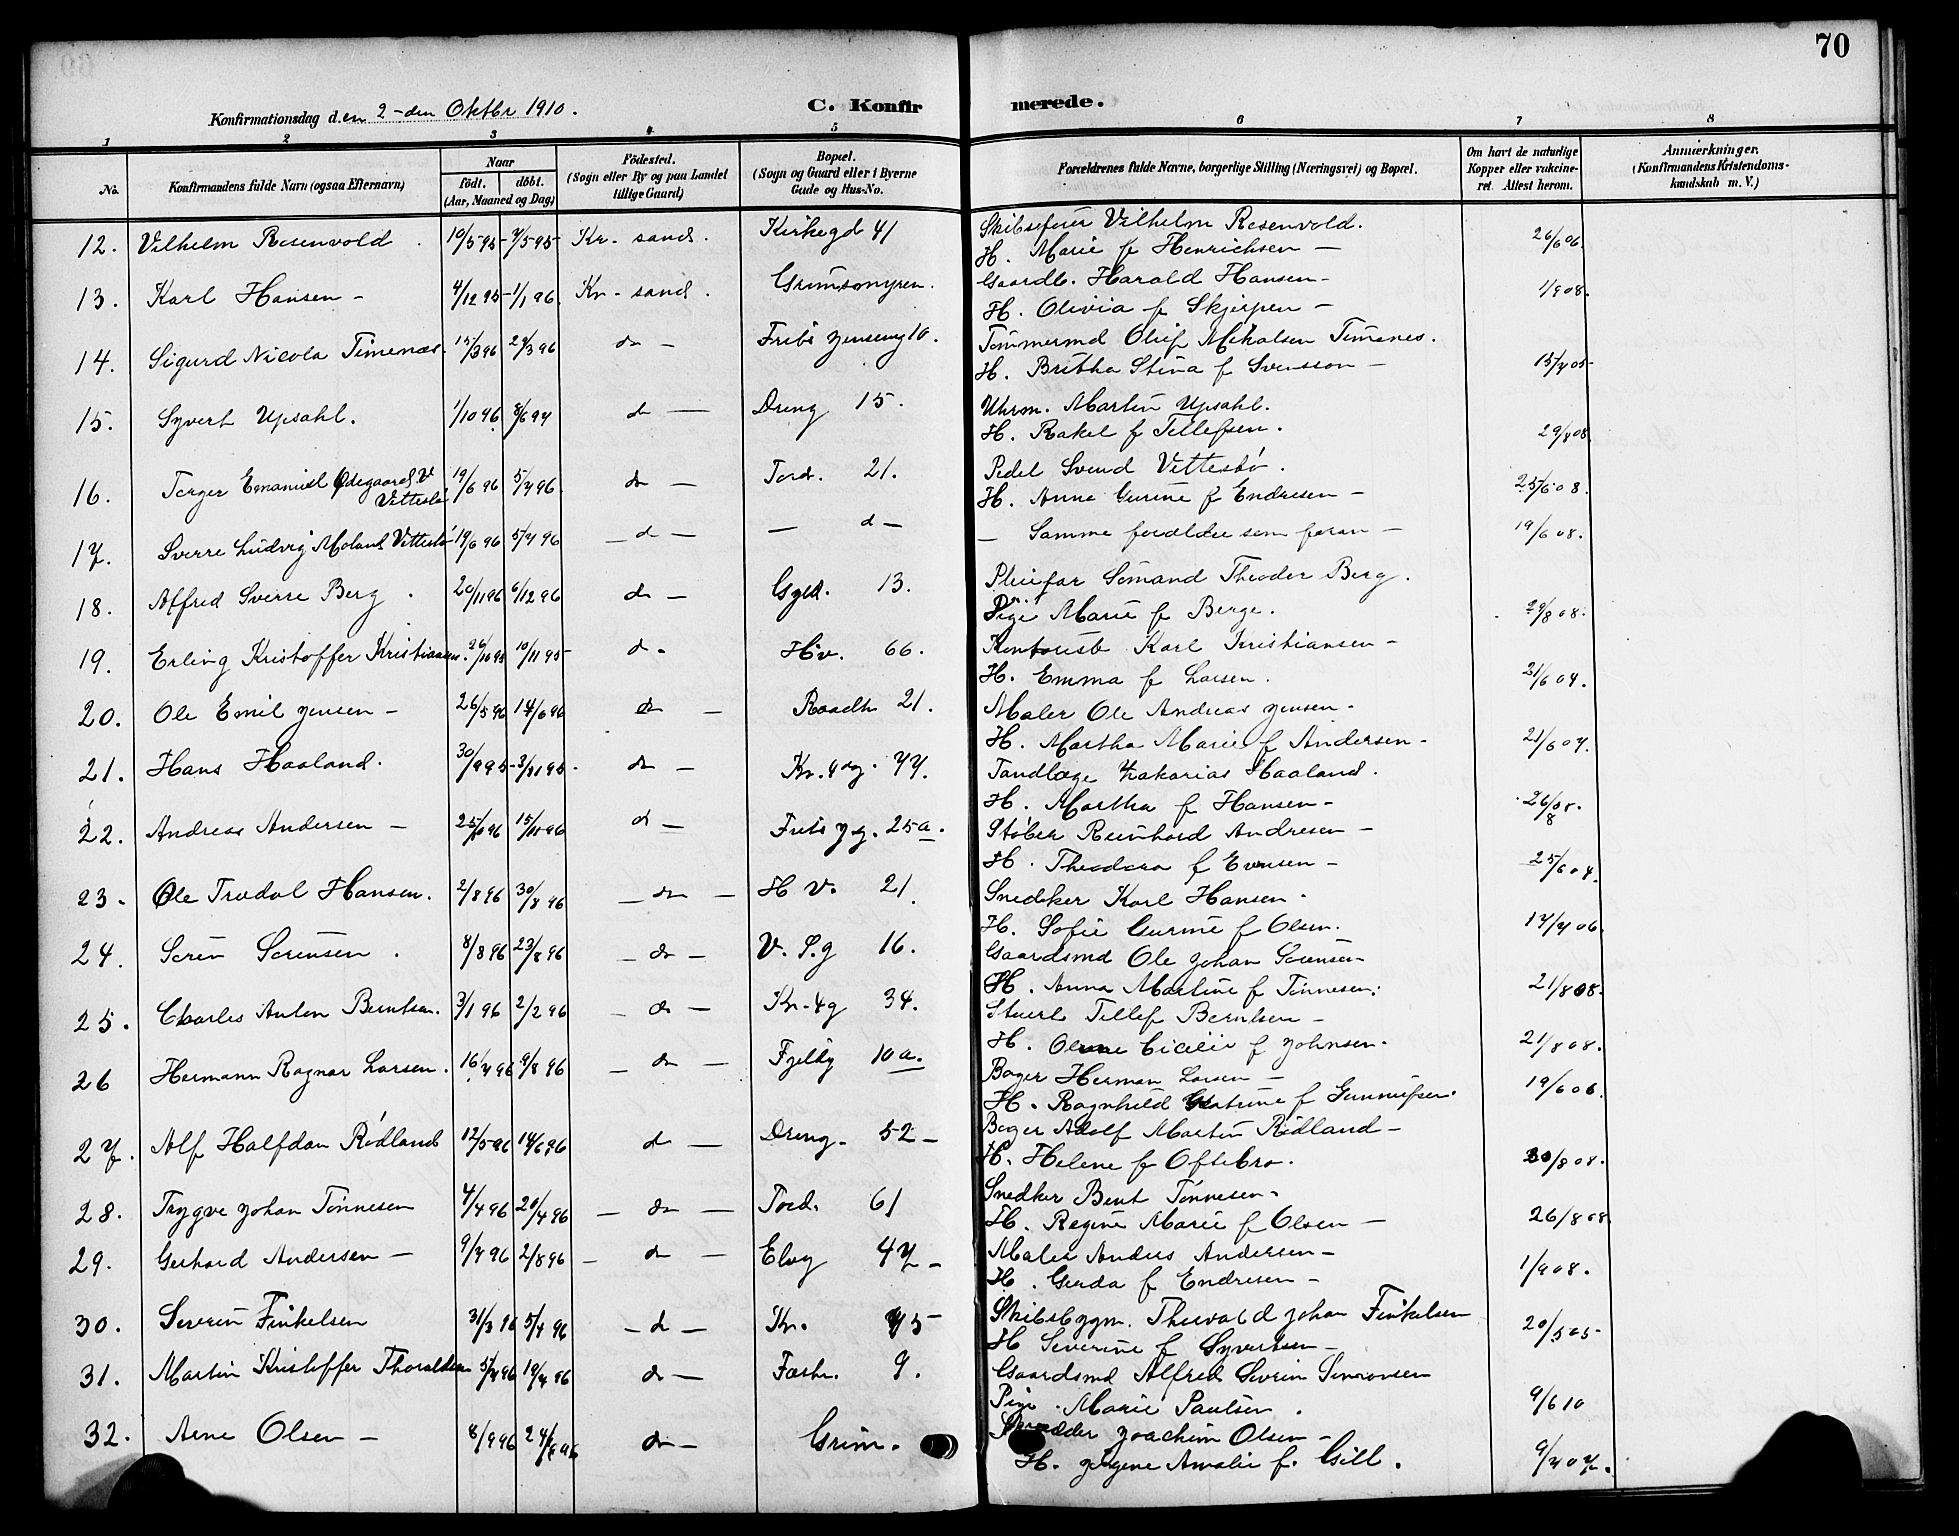 70
Konfirmationsdag den 2-den Oktbr 1910.
C. Konfirmerede.
1 2 3 4 5 6 7 8
No. Konfirmandens fulde Navn (ogsaa Efternavn) Naar født. døbt. (Aar, Maaned og Dag) Fødested. (Sogn eller By og paa Landet tillige Gaard) Bopæl. (Sogn og Gaard eller i Byerne Gade og Hus-No.) Forældrenes fulde Navne, borgerlige Stilling (Næringsvei) og Bopæl. Om havt de naturlige Kopper eller vakcineret. Attest herom. Anmærkninger. (Konfirmandens Kristendomskundskab m. V.)
12. Vilhelm Rosenvold. 10/5 95 Kr.sand. Kirkegd 41 Skibsfører Vilhelm Rosenvold. 26/6 06.
H. Marie f Henrichsen —
13. Karl Hansen - 4/12 95 - 1/1 96. Kr-sand. Grimsmyren. Gaardb. Harald Hansen - 1/9 08.
H. Olivia f Skjerpen -
14. Sigurd Nicola Timenæs. 15/3 96 29/3 96 do - Frits Jensensg 10. Tømmermd Oluf Nikolsen Timenes.
H. Britha Stina f Svensson —
15. Syvert Upsahl. 1/10 96 do — Dreng 15. Uhrm. Martin Upsahl.
H. Rakel f Tellefsen.
16. Terger Emanuel Ødegaard Vittesbø 19/6 96 5/7 96 do — Tord. 21. Pedel Svend Vittesbø. 25/6 08.
H. Anne Gurine f Endresen —
17. Sverre Ludvig Moland Vittesbø 19/6 96 5/7 96 — d — — d — — Samme forældre som foran — 19/6 08.
18. Alfred Sverre Berg. 20/11 96 6/12 96 do — Gyld. 13. Pleiefar Sømand Theodor Berg.
Pige Marie f Berge. 29/8 08.
19. Erling Kristoffer Kristiansen. 26/10 95 10/11 95 d - H.v. 66. Kontorist Karl Kristiansen -
H. Emma f Larsen. 21/6 07.
20. Ole Emil Jensen - 26/5 96 14/6 96 do — Raadh 21. Maler Ole Andreas Jensen.
H. Martha Marie f Andersen - 21/6 07.
21. Hans Haaland. 30/9 95 - 3/11 95 - do — Kr.4dg. 77. Tandlæge Zakarias Haaland.
H. Martha f Hansen -
22. Andreas Andersen — 25/10 96 15/11 96 d — Frits J.g. 25a. Støber Reinhard Andresen —
H. Theodora f Evensen — 25/6 07.
23. Ole Trædal Hansen. 2/8 96 30/8 96 — do — H V. 21. Snedker Karl Hansen.
H. Sofie Gurine f Olsen. 17/7 06
24. Søren Sørensen. 8/8 96 23/8 96 — do — V. S.g 16. Gaardsmd Ole Johan Sørensen
H. Anna Martine f Tønnesen. 21/8 08.
25. Charles Anton Berntsen. 3/1 96 2/2 96 — do — Kr.4g 34. Stuert Tellef Berntsen —
H. Cicilie f Johnsen. 21/8 08.
26 Hermann Ragnar Larsen. 16/7 96 9/8 96 — do — Fjellg 10a. Bager Herman Larsen —
H. Ragnhild Katrine f Gunnufsen. 19/6 06.
27. Alf Halfdan Rødland 12/5 96 14/6 96 d — Dreng. 52 — Bager Adolf Martin Rødland —
H. Helene f Oftebro. 20/8 08.
28. Trygve Johan Tønnesen 4/4 96 20/4 96 — do — Tord. 61 Snedker Bent Tønnesen.
H. Regine Marie f Olsen — 26/8 08.
29. Gerhard Andersen — 9/7 96 2/8 96 — do — Elvg 47 — Maler Anders Andersen —
H. Gerda f Endresen — 1/9 08.
30. Severin Finkelsen 31/3 96 5/4 96 — d — Kr. 45 Skibsbygm. Thorvald Johan Finkelsen
H Severine f Syvertsen — 20/5 05
31. Martin Kristoffer Thoraldsen 5/4 96 19/4 96 do — Fæstn. 9. Gaardsmd Alfred Severin Simonsen
Pige. Marie Paulsen. 9/6 10
32. Arne Olsen — 8/9 96 do — Grim. Skrædder Joachim Olsen —
H. Jørgine Amalie f. Gill. 9/7 07.